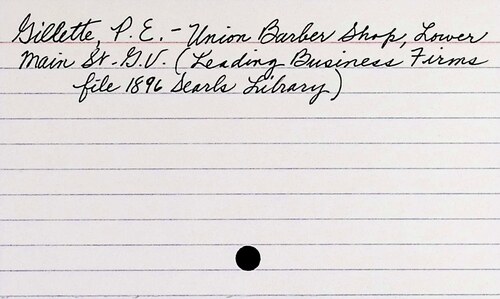 Gillette, P. E. - Union Barber Shop, Lower
Main St. G.V. (Leading Business Firms
file 1896 Searls Library)